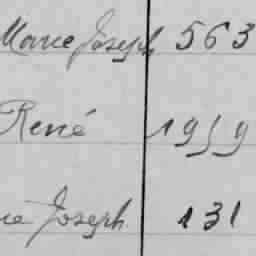 Marie Joseph 563
René 1959
ie Joseph 131